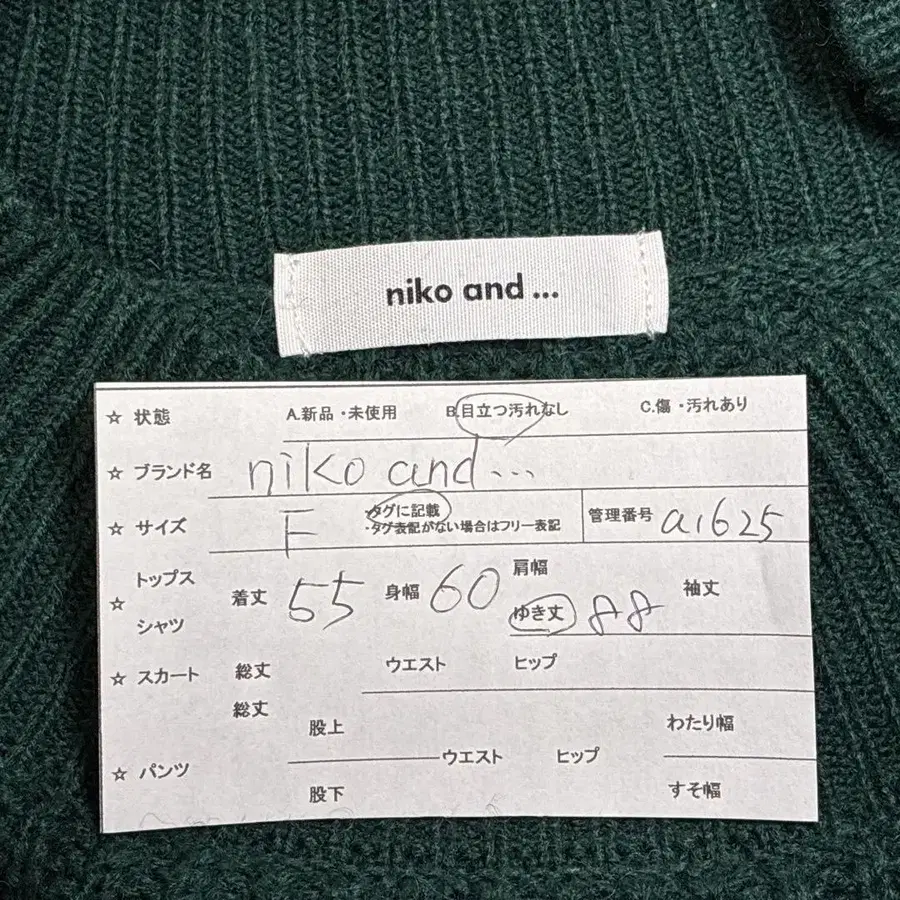 niko and ...
☆ 状態 A.新品・未使用 B.目立つ汚れなし C.傷・汚れあり
☆ ブランド名 niko and...
☆ サイズ F ・タグに記載 管理番号 a1625
・タグ表記がない場合はフリー表記
トップス 肩幅
☆ 着丈 55 身幅 60 袖丈
シャツ ゆき丈 88
☆ スカート 総丈 ウエスト ヒップ
総丈 股上 わたり幅
☆ パンツ ウエスト ヒップ
股下 すそ幅